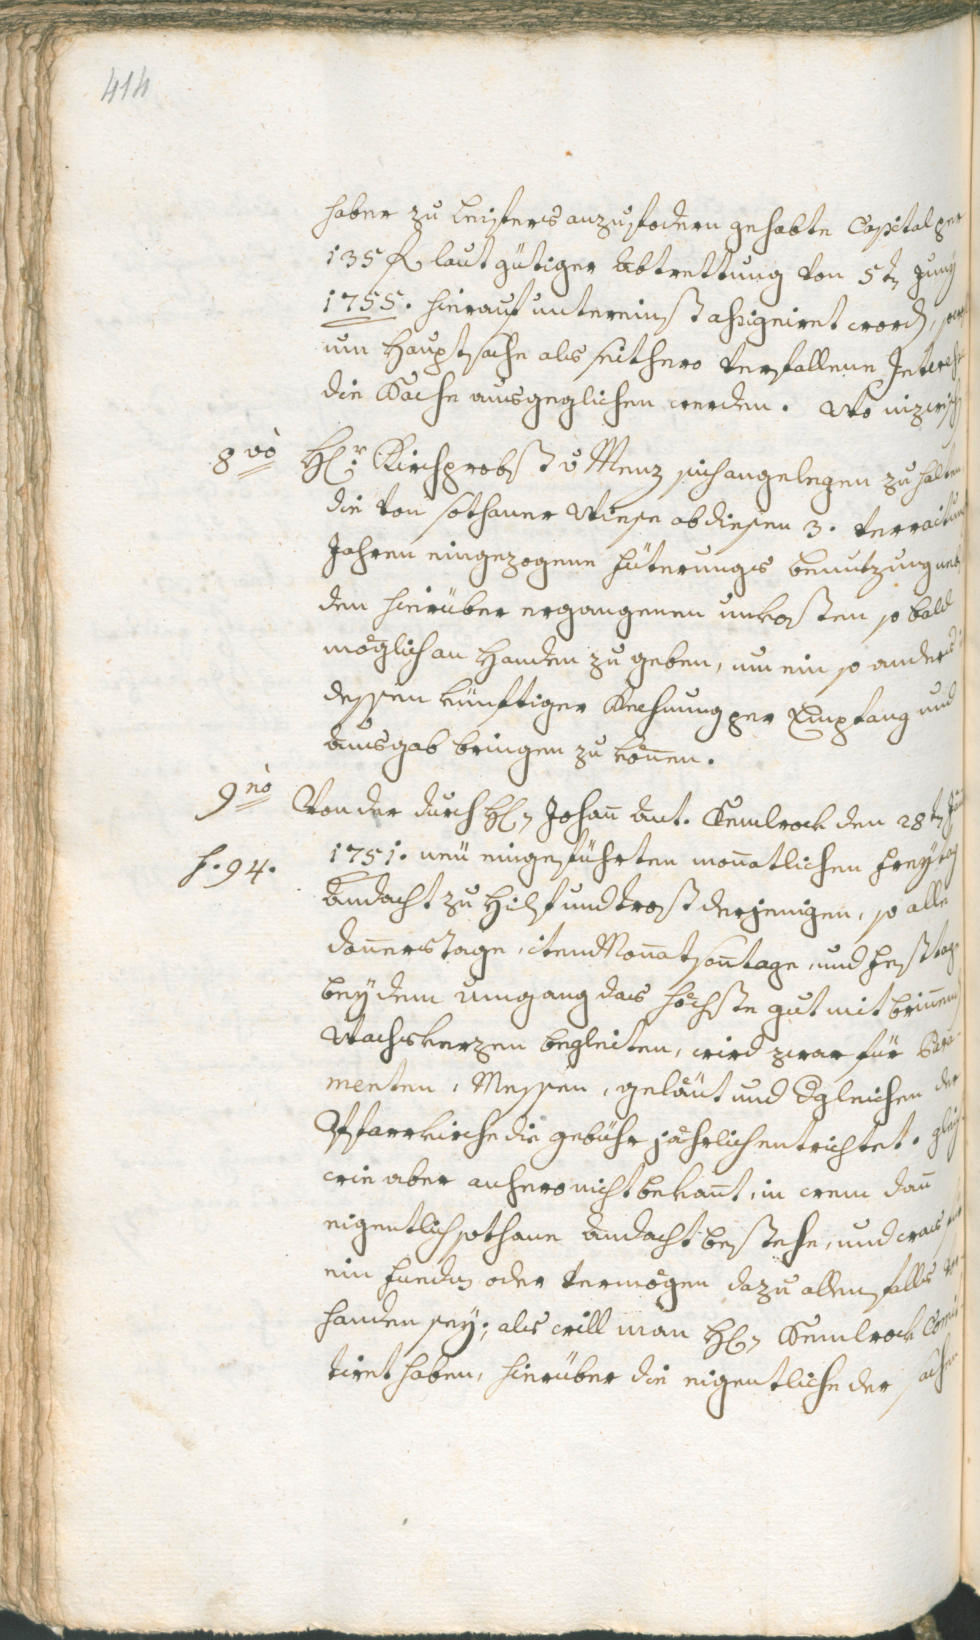 414
haber zu leisters anzufodern gehabte Capital per
135 fl laut gütiger Abtrettung von 5t Juny
1755. hierauf untereinst assigniret word,
um Hauptsache als seithero verfallene Interesse
die Sache ausgeglichen werden. Wo inzwisch
8vò Hr Kirchprobst v Menz sich angelegen zu halten
die von sothaner Wiese ab diesen 3. verraitung
Jahren eingezogene füterungs benutzung nebst
den hierüber ergangenen unkosten so bald
möglich an Handen zu geben, um ein so anders
dessen künftiger Rechnung per Empfang und
Ausgab bringen zu können.
9nò Von der durch H Johan̄ Ant. Kemlrock den 28t
f. 94. 1751. neü eingeführten mon̄atlichen freytag
Andacht zu Hilf und trost derjenigen, so alle
don̄erstage, item Monatson̄tage, und festtage
bey dem Umgang das höchste gut mit brin̄end
Wachskerzen begleiten, wird zwar für Para-
menten, Messen, geläut und dgleichen der
Pfarrkirche die gebühr jährlich entrichtet. gleich
wie aber anhero nicht bekan̄t, in wem dan̄
eigentlich sothane Andacht bestehe, und was für
ein fundus oder Vermögen dazu allenfalls vor-
handen sey; als will man H Kemlrock
tiret haben, hierüber die eigentliche der sachen